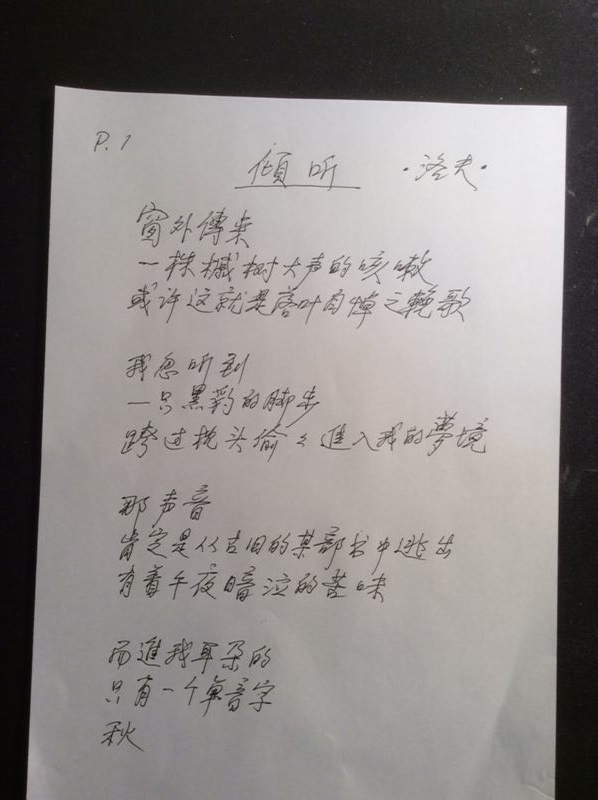 P.1
倾听 ·洛夫·
窗外傳来
一株槭树大声的咳嗽
或许这就是落叶自悼之輓歌
我忽听到
一只黑豹的脚步
跨过枕头偷々進入我的夢境
那声音
肯定是从古旧的某部书中逃出
有着午夜暗泣的苦味
而進我耳朵的
只有一个单音字
秋